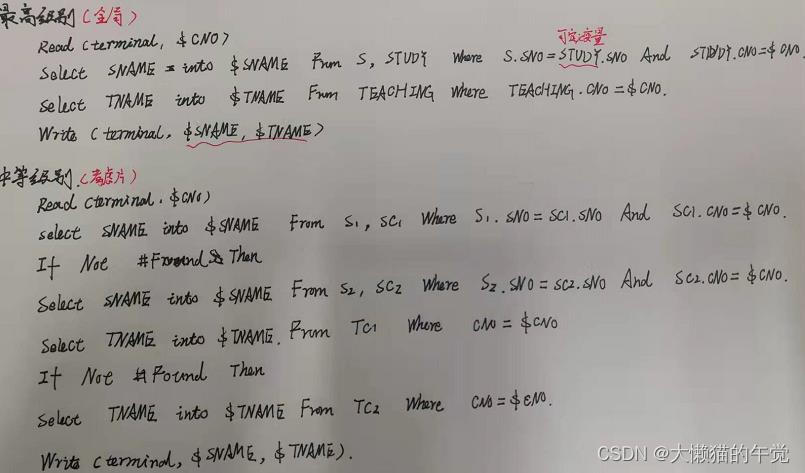 最高级别(全局)
Read (terminal, $CNO)
可写变量
Select SNAME into $SNAME From S, STUDY Where S.SNO=STUDY.SNO And STUDY.CNO=$CNO.
Select TNAME into $TNAME From TEACHING Where TEACHING.CNO=$CNO.
Write (terminal, $SNAME, $TNAME)
中等级别(考虑片)
Read (terminal, $CNO)
select SNAME into $SNAME From S1, SC1 Where S1.SNO=SC1.SNO And SC1.CNO=$CNO.
If Not #Found Then
Select SNAME into $SNAME From S2, SC2 Where S2.SNO=SC2.SNO And SC2.CNO=$CNO.
Select TNAME into $TNAME. From TC1 Where CNO=$CNO
If Not #Found Then
Select TNAME into $TNAME From TC2 Where CNO=$CNO.
Write (terminal, $SNAME, $TNAME).
CSDN @大懒猫的午觉